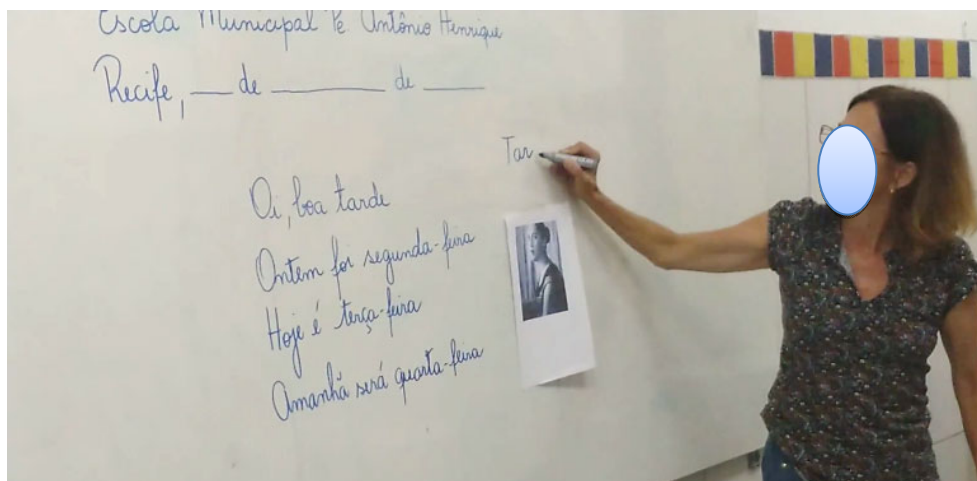 Escola Municipal Pe. Antônio Henrique
Recife, ___ de ________ de ____
Tar
Oi, boa tarde
Ontem foi segunda-feira
Hoje é terça-feira
Amanhã será quarta-feira